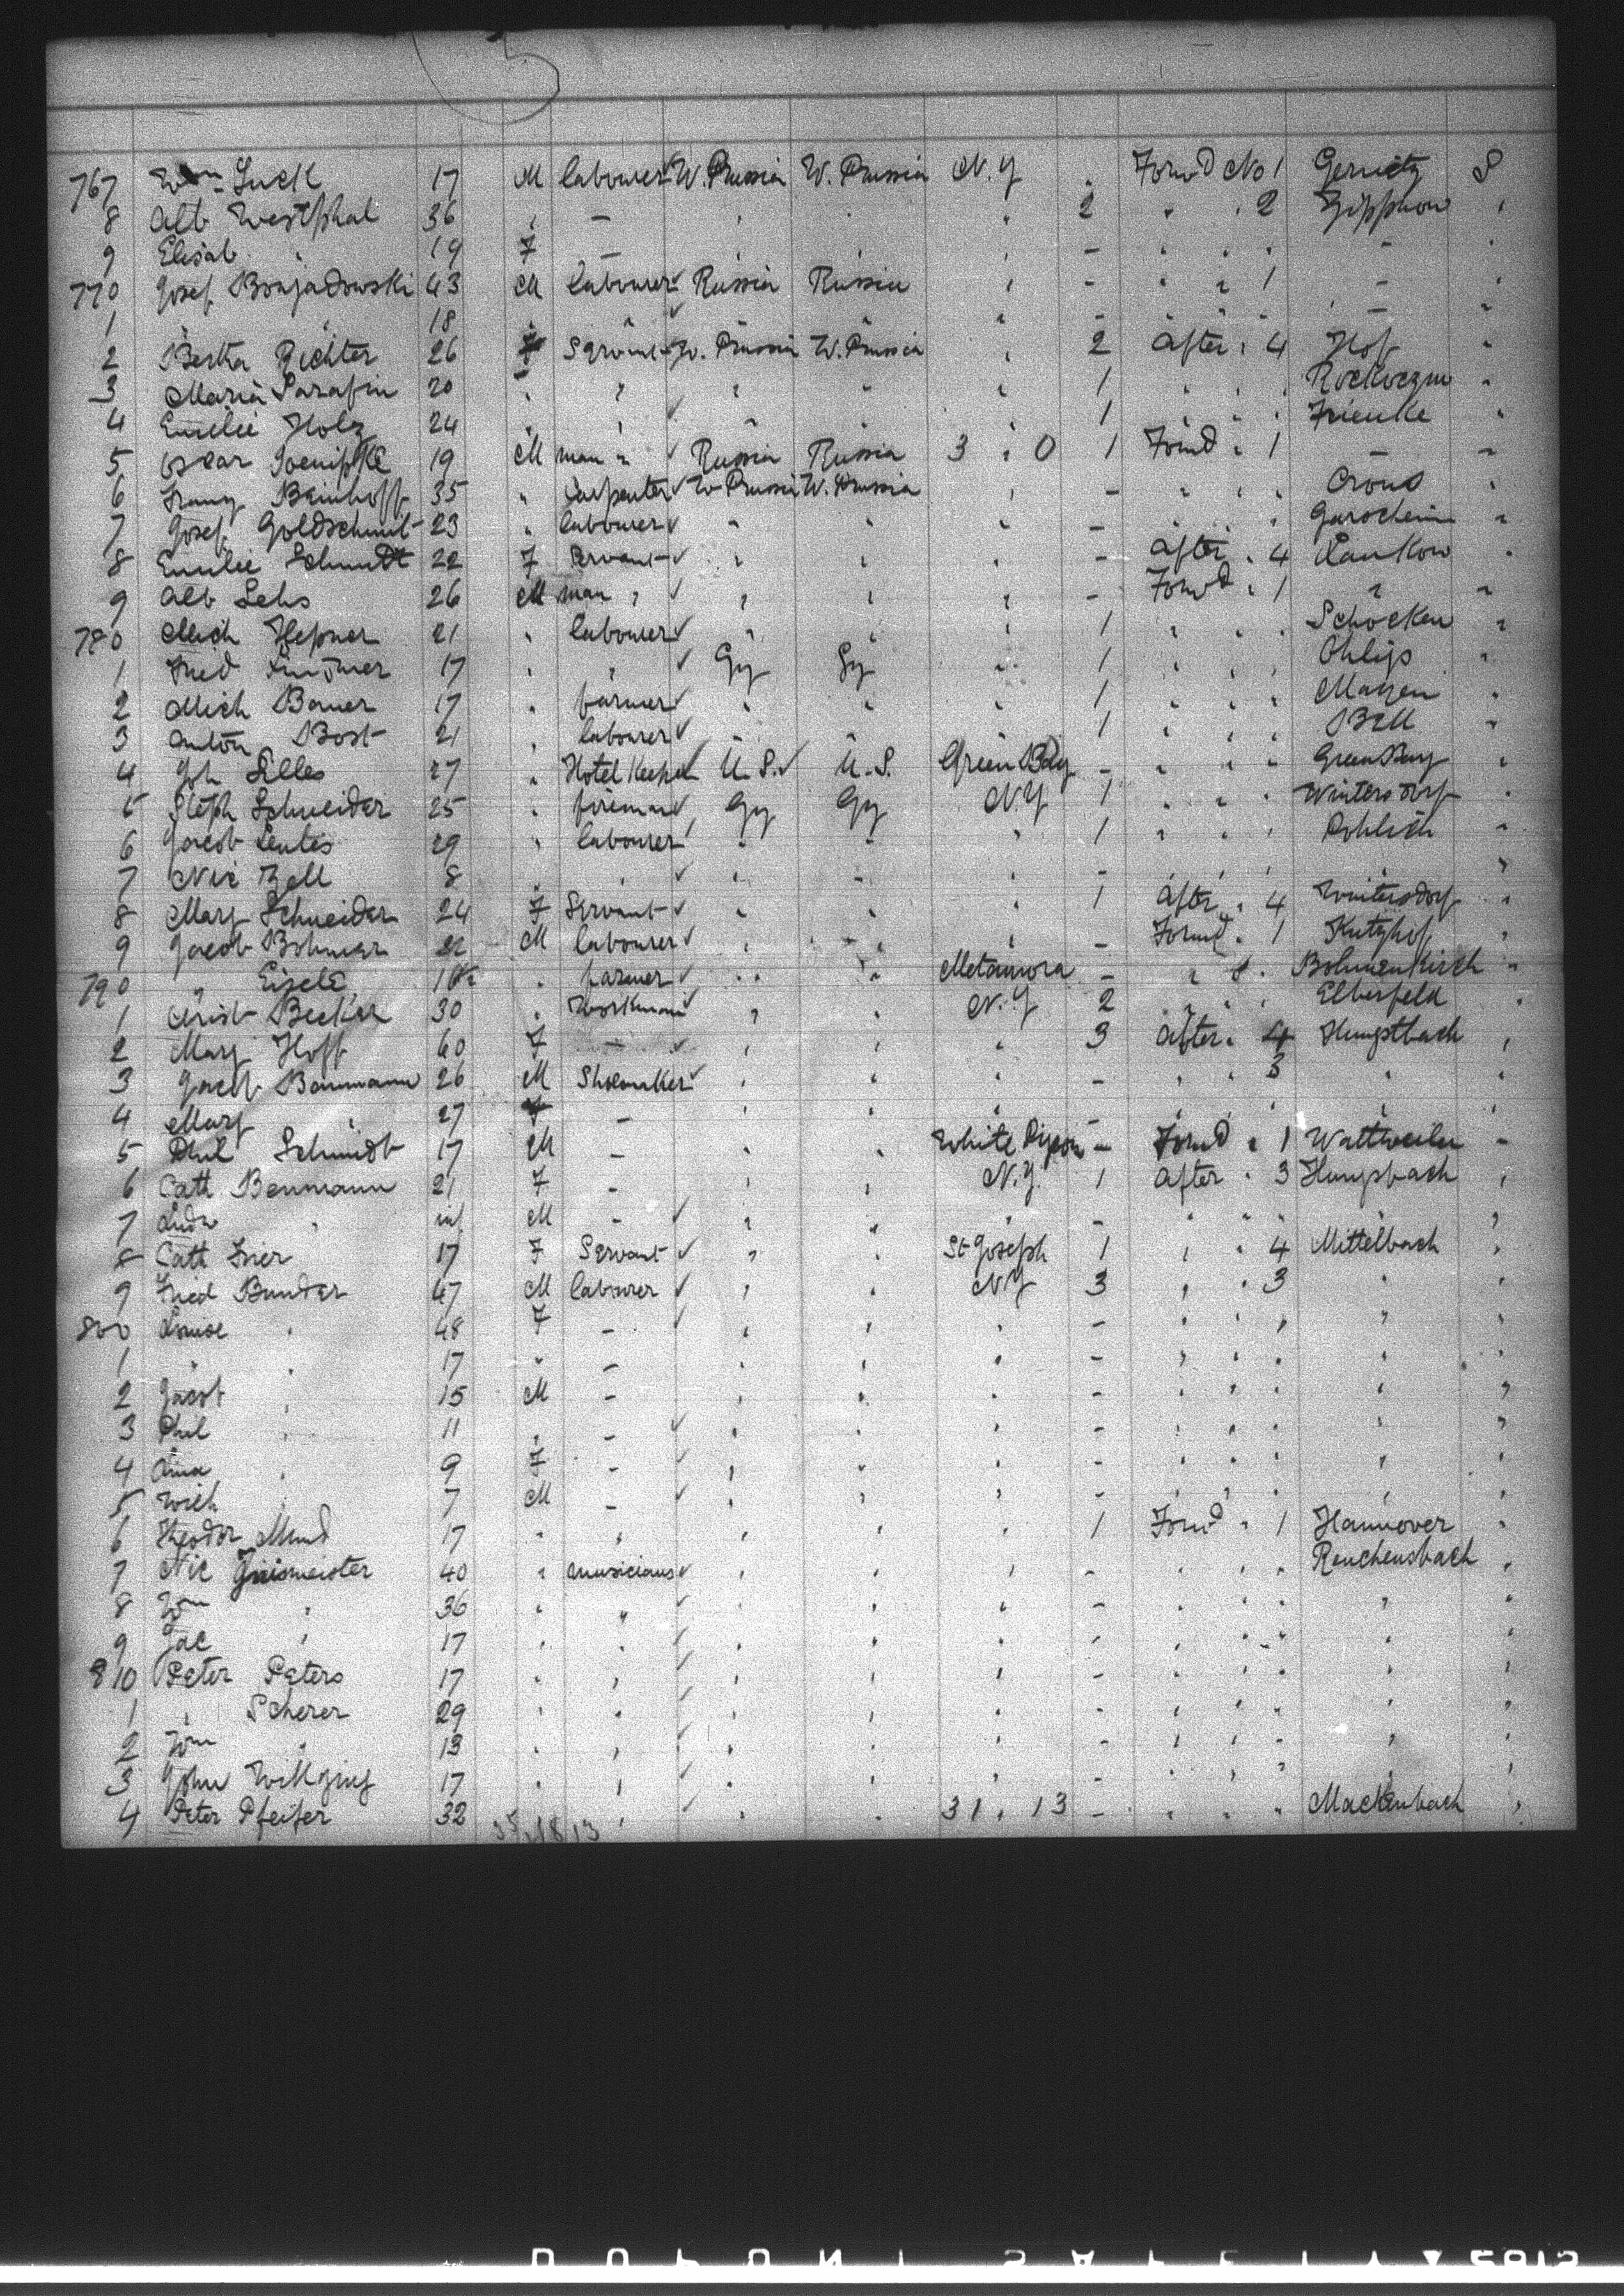 5
767 Wm Luck 17 M labourer W. Prussia W. Prussia N. Y Forwd No 1 Gernitz S
8 Alb Westphal 36 " — " " " 2 " " 2 Zipphow "
9 Elisab " 19 F " " " — " " " — "
770 Josef 43 M labourer Russia Russia " — " " 1 — "
1 " " 18 " " " " " — " " " — "
2 Bertha Richter 26 F Servant W. Prussia W. Prussia " 2 After " 4 Hof "
3 Maria Parafin 20 " " " " " 1 " " "
4 Emilie Holz 24 " " " " " 1 " " " Frienke "
5 Oskar 19 M man " Russia Russia 3 " 0 1 Forwd " 1 — "
6 Franz Beinhoff 35 " Carpenter W Prussia W. Prussia " — " " " Crone "
7 Josef Goldschmit 23 " labourer " " " — " " " "
8 Emilie Schmidt 22 F Servant " " " — After " 4 Lankow "
9 Alb Lehs 26 M man " " " " — Forwd " 1 " "
780 Mich Hepner 21 " labourer " " " 1 " " " Schocken "
1 Fred 17 " " Gy Gy " 1 " " " Ohligs "
2 Mich Bauer 17 " farmer " " " 1 " " " Mayen "
3 Anton Bost 21 " labourer " " " 1 " " " Bell "
4 Joh Lilles 27 " Hotel Keeper U. S. U. S. Green Bay — " " " Green Bay
5 Steph Schneider 25 " fireman Gy Gy N Y 1 " " " Wintersdorf "
6 Jacob Lentes 29 " labourer " " " 1 " " " "
7 Nic Zell 8 " " " " " — " " " " "
8 Mary Schneider 24 F Servant " " " 1 After " 4 Wintersdorf "
9 Jacob Bohmer 22 M labourer " " " — Forwd " 1 Kutzhof "
790 " Eisele " farmer " " Metamora — " " " Bohmenkirch "
1 Christ Becker 30 " Workman " " N. Y 2 " " " Elberfeld "
2 Mary Hoff 60 F — " " " 3 After " 4 Hengstbach "
3 Jacob Baumann 26 M Shoemaker " " " — " " 3 " "
4 Mary " 27 F — " " " — " " " " "
5 Phil Schmidt 17 M — " " White Pigeon — Forwd " 1 Wattweiler "
6 Cath Baumann 21 F — " " N. Y. 1 After " 3 Hengsbach "
7 Ludw " inf M — " " " — " " " " "
8 Cath Frier 17 F Servant " " St Joseph 1 " " 4 Mittelbach "
9 Fried Bunder 47 M labourer " " N Y 3 " " 3 " "
800 Louise " 48 F — " " " — " " " " "
1 " " 17 " — " " " — " " " " "
2 Jacob " 15 M — " " " — " " " " "
3 Phil " 11 " — " " " — " " " " "
4 Anna " 9 F — " " " — " " " " "
5 Wilh " 7 M — " " " — " " " " "
6 Theodor Mund 17 " " " " " 1 Forwd " 1 Hannover "
7 Nic 40 " musicians " " " — " " " Reuchensbach "
8 Wm " 36 " " " " " — " " " " "
9 Jac " 17 " " " " " — " " " " "
810 Peter Peters 17 " " " " " — " " " " "
1 " Scherer 29 " " " " " — " " " " "
2 Wm " 13 " " " " " — " " " " "
3 John Willging 17 " " " " " — " " " " "
4 Peter Pfeifer 32 " " " 31 " 13 — " " " Mackenbach "